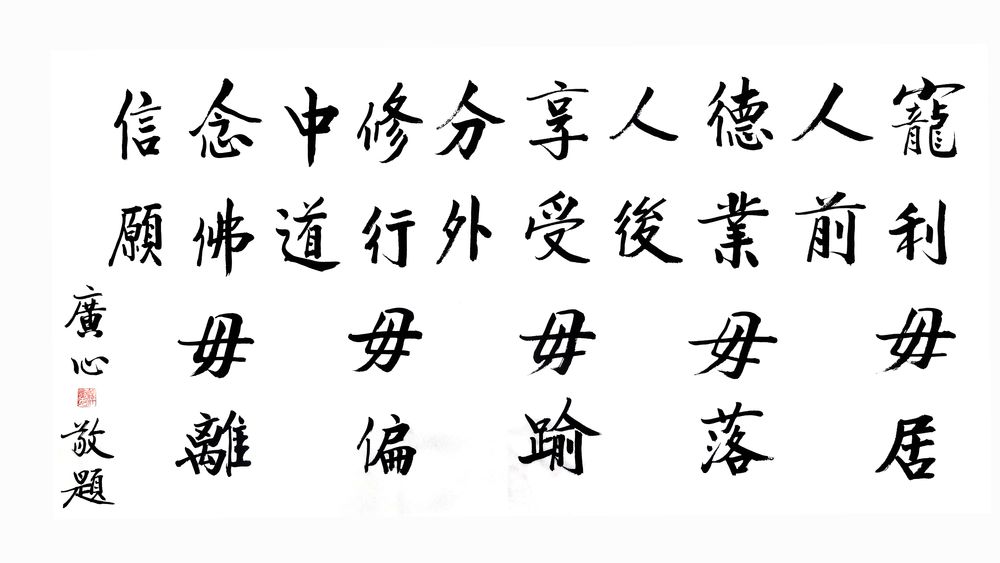 寵利毋居
人前
德業毋落
人後
享受毋踰
分外
修行毋偏
中道
念佛毋離
信願
廣心敬題